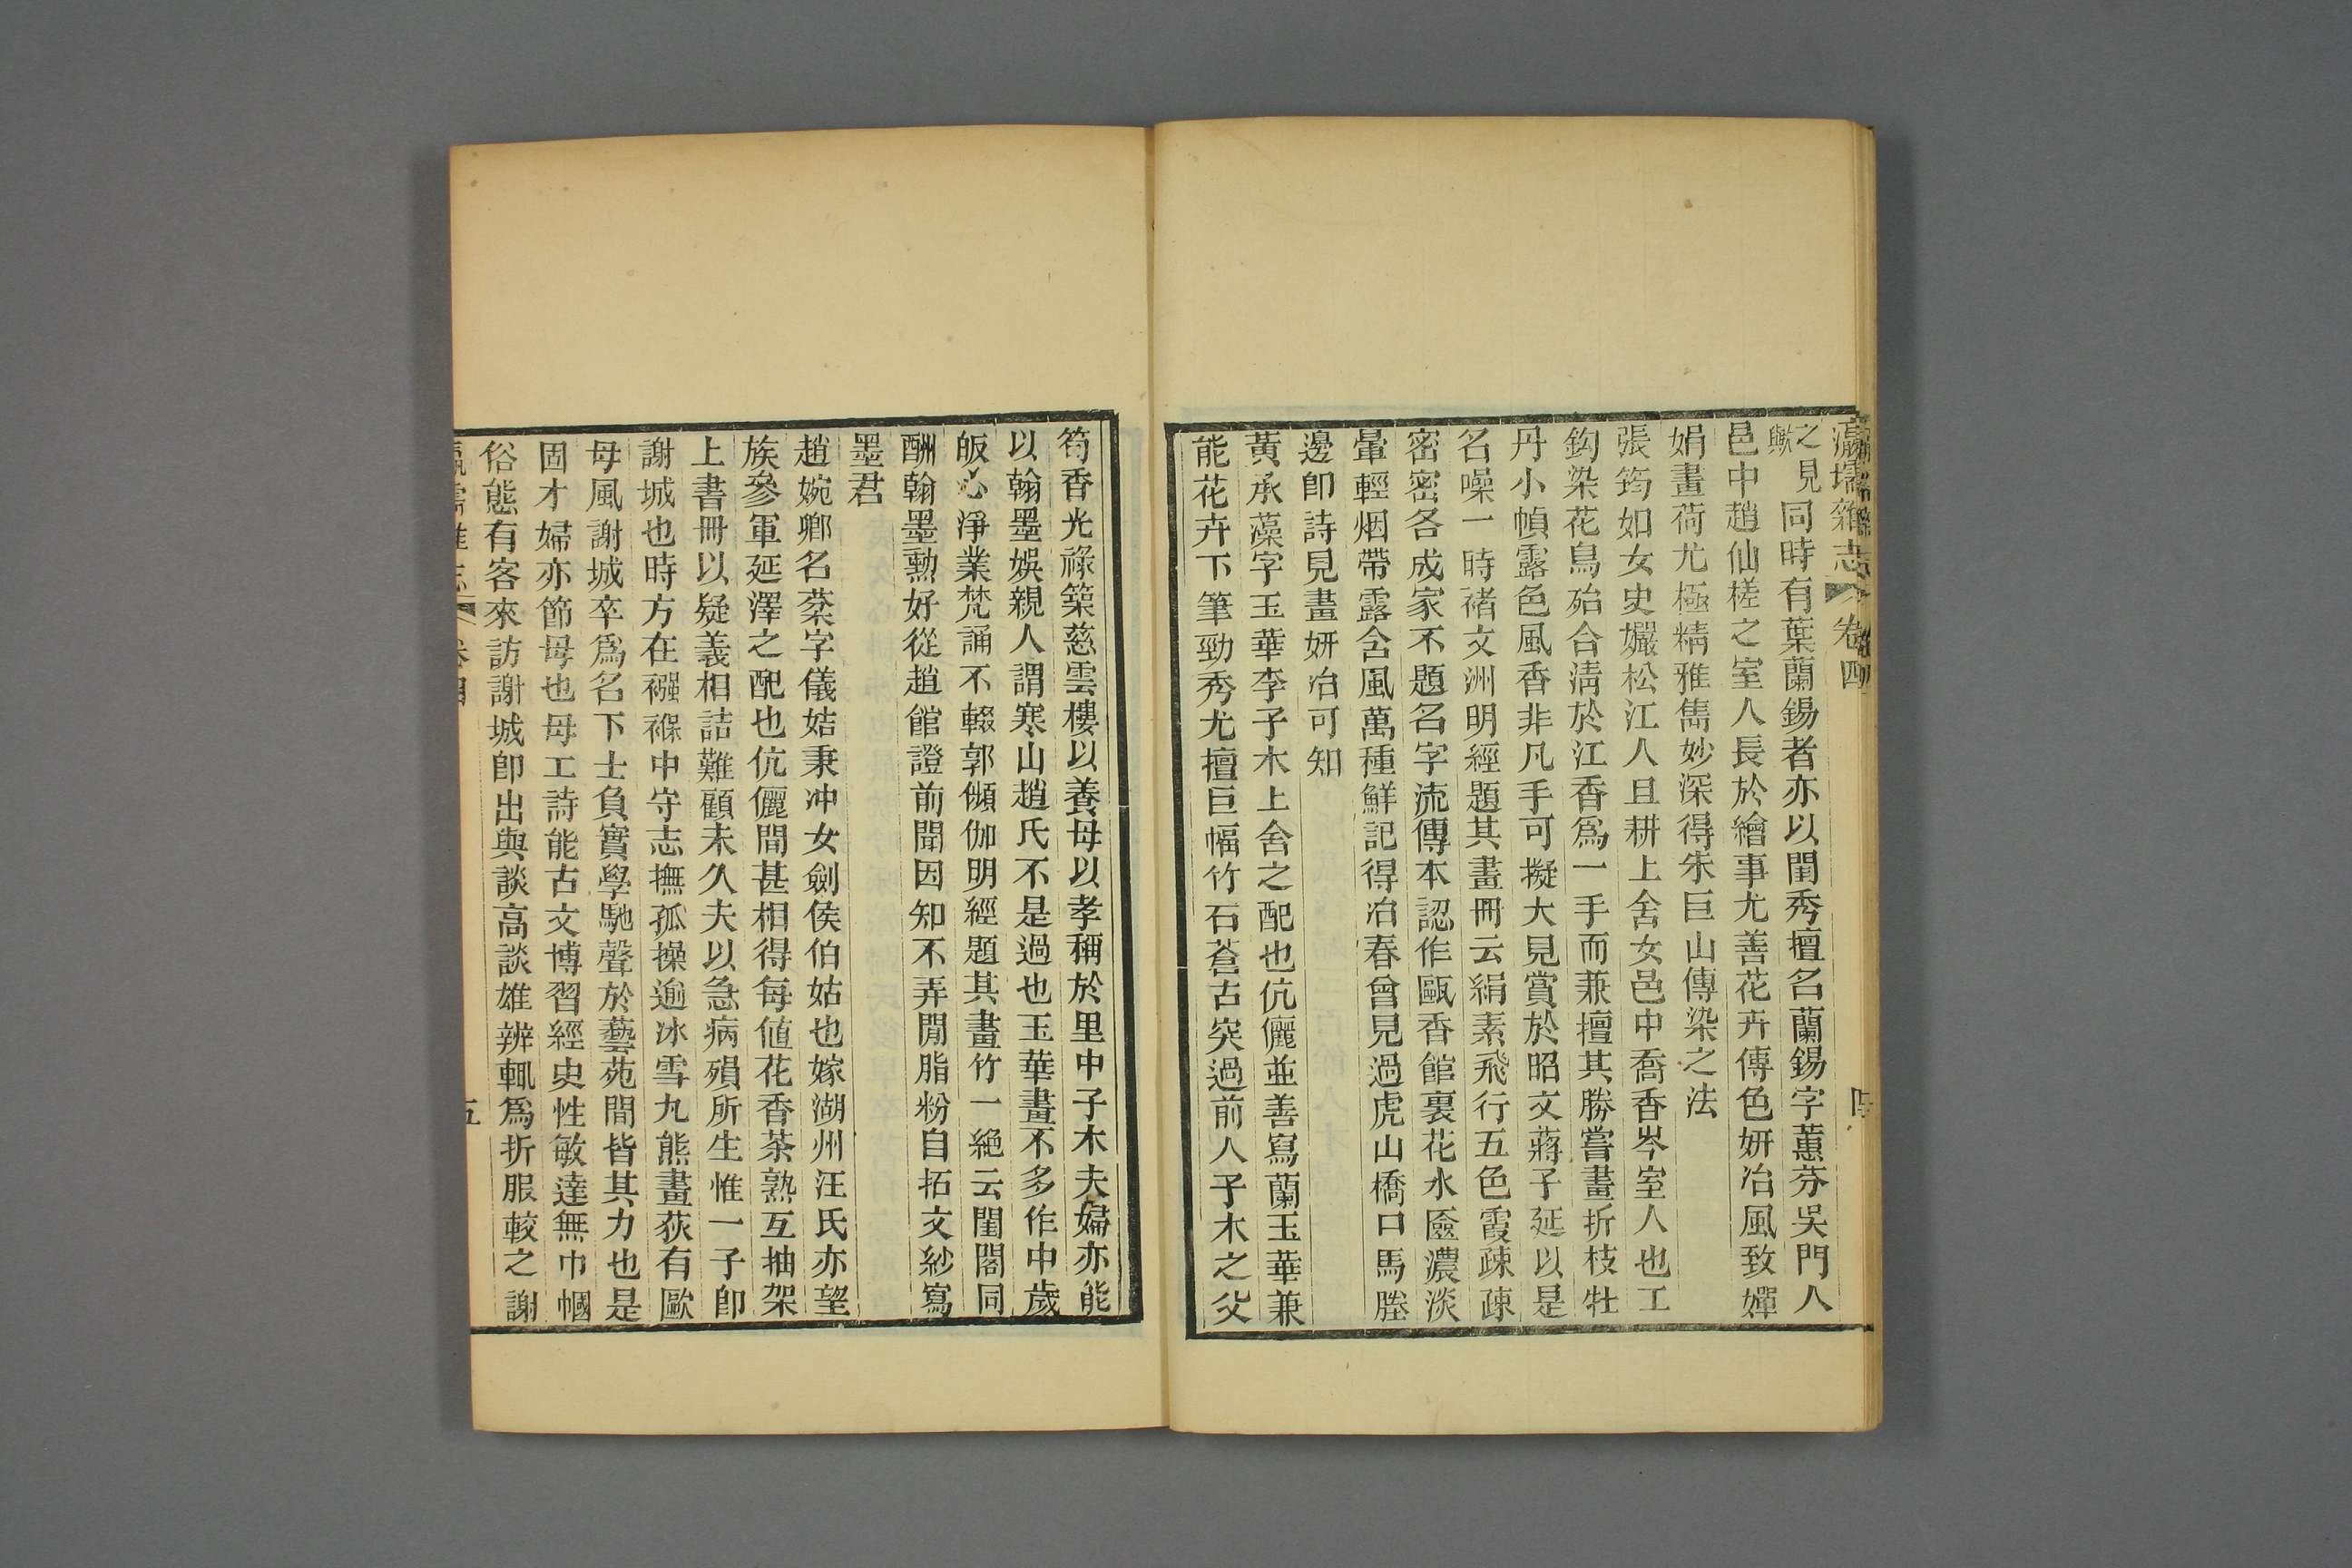 瀛壖雜志 卷四 四
之見歟同時有葉蘭錫者亦以閨秀擅名蘭錫字蕙芬吳門人
邑中趙仙槎之室人長於繪事尤善花卉傅色妍冶風致嬋
娟畫荷尤極精雅雋妙深得朱巨山傳染之法
張筠如女史孍松江人且耕上舍女邑中喬香岑室人也工
鈎染花鳥殆合清於江香爲一手而兼擅其勝嘗畫折枝牡
丹小幀露色風香非凡手可擬大見賞於昭文蔣子延以是
名噪一時褚文洲明經題其畫冊云絹素飛行五色霞疎疎
密密各成家不題名字流傳本認作甌香館裏花水匳濃淡
暈輕烟帶露含風萬種鮮記得冶春曾見過虎山橋口馬塍
邊卽詩見畫妍冶可知
黃承藻字玉華李子木上舍之配也伉儷並善寫蘭玉華兼
能花卉下筆勁秀尤擅巨幅竹石蒼古突過前人子木之父
筠香光祿築慈雲樓以養母以孝稱於里中子木夫婦亦能
以翰墨娛親人謂寒山趙氏不是過也玉華畫不多作中歲
皈心淨業梵誦不輟郭頻伽明經題其畫竹一絕云閨閣同
酬翰墨勳好從趙館證前聞因知不弄閒脂粉自拓文紗寫
墨君
趙婉卿名棻字儀姞秉冲女劍侯伯姑也嫁湖州汪氏亦望
族參軍延澤之配也伉儷間甚相得每值花香茶熟互抽架
上書冊以疑義相詰難顧未久夫以急病殞所生惟一子卽
謝城也時方在襁褓中守志撫孤操逾冰雪丸熊畫荻有歐
母風謝城卒爲名下士負實學馳聲於藝苑間皆其力也是
固才婦亦節母也母工詩能古文博習經史性敏達無巾幗
俗態有客來訪謝城卽出與談高談雄辨輒爲折服較之謝
瀛壖雜志 卷四 五